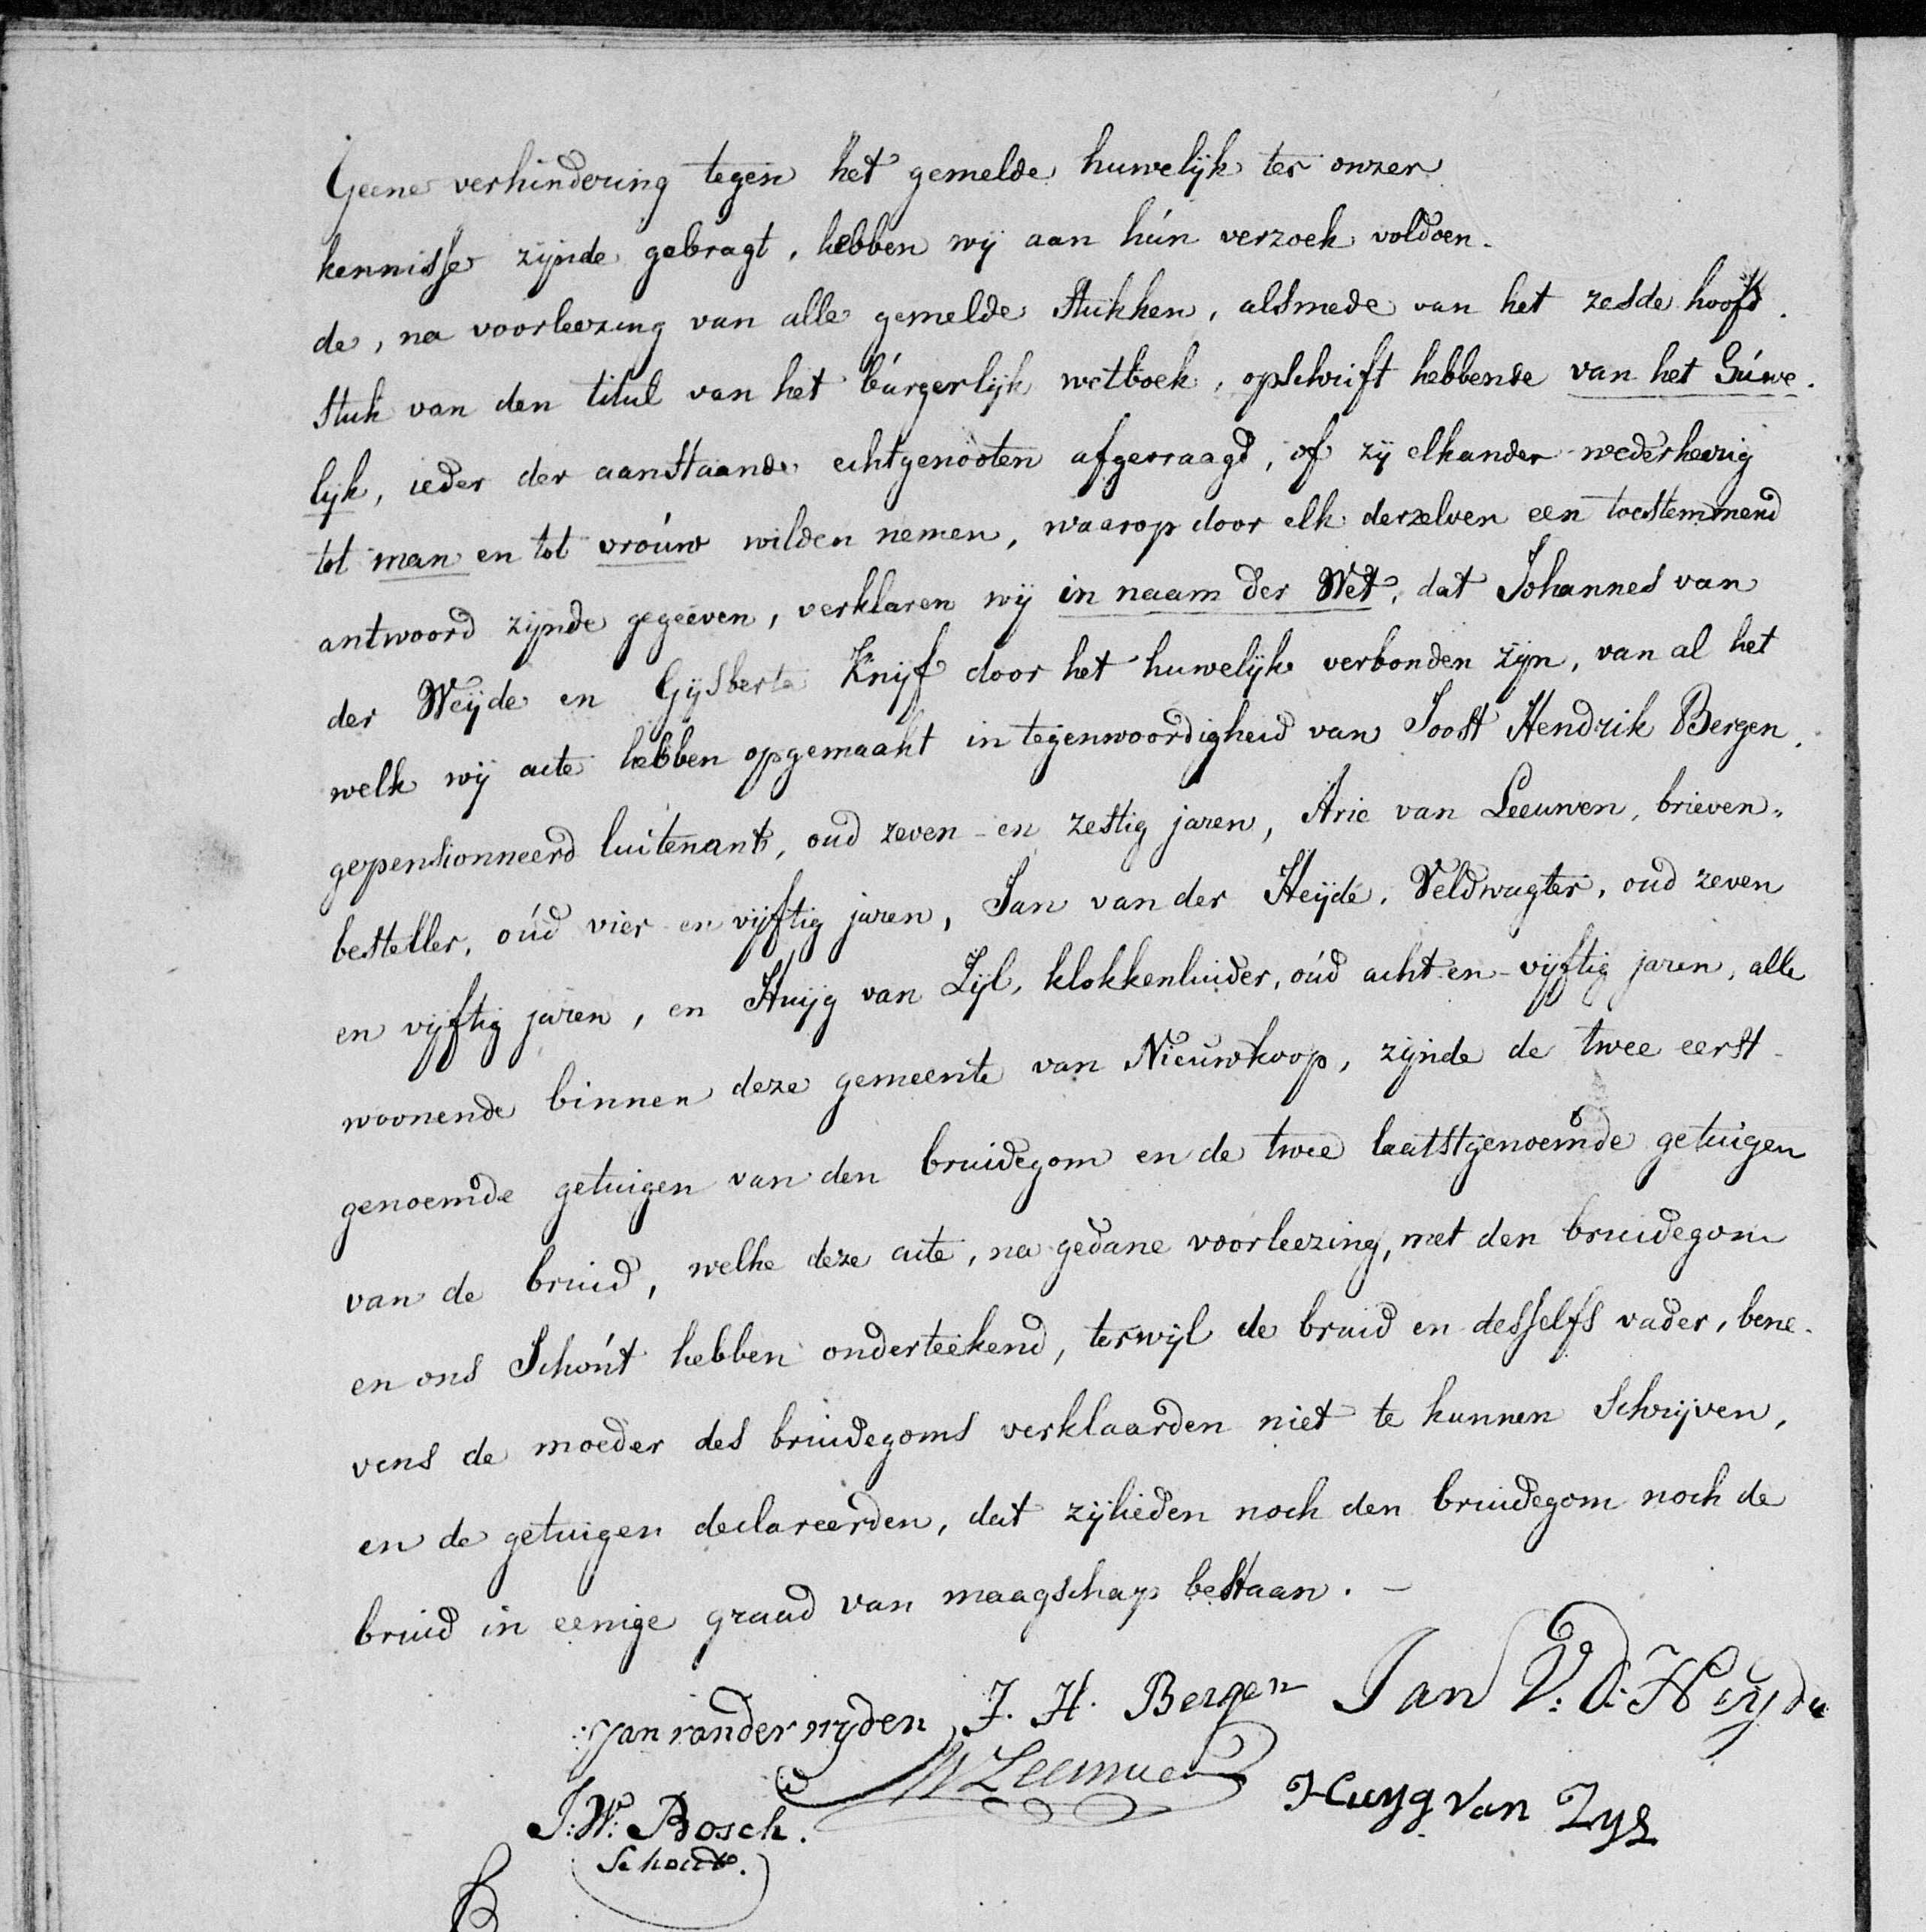 Geene verhindering tegen het gemelde huwelijk ter onzer
kennisse zijnde gebragt, hebben wij aan hún verzoek voldoen-
de, na voorleezing van alle gemelde stukken, alsmede van het zesde hoofd-
stuk van den titul van het búrgerlijk wetboek, opschrift hebbende van het Húwe-
lijk, ieder der aanstaande echtgenooten afgevraagd, of zij elkander wederkeerig
tot man en tot vroúw wilden nemen, waarop door elk derzelven een toestemmend
antwoord zijnde gegeeven, verklaren wij in naam der Wet, dat Johannes van
der Weijde en Gijsberta Knijf door het huwelijk verbonden zijn, van al het
welk wij acte hebben opgemaakt in tegenwoordigheid van Joost Hendrik Bergen,
gepensionneerd luitenant, oud zeven-en zestig jaren, Arie van Leeuwen, brieven-
besteller, oúd vier en vijftig jaren, Jan van der Heijde, Veldwagter, oud zeven
en vijftig jaren, en Huijg van Zijl, klokkenluider, oúd acht en-vijftig jaren, alle
woonende binnen deze gemeente van Nieuwkoop, zijnde de twee eerst-
genoemde getuigen van den bruidegom en de twee laatstgenoemde getuigen
van de bruid, welke deze acte, na gedane voorleezing, met den bruidegom
en ons Schoút hebben onderteekend, terwijl de bruid en desselfs vader, bene-
vens de moeder des bruidegoms verklaarden niet te kunnen schrijven,
en de getuigen declareerden, dat zijlieden noch den bruidegom noch de
bruid in eenige graad van maagschap bestaan. -
J. H. Bergen Jan V: D: Heyde
Leeuwen Huyg van Zyl
J: W: Bosch.
Schout.